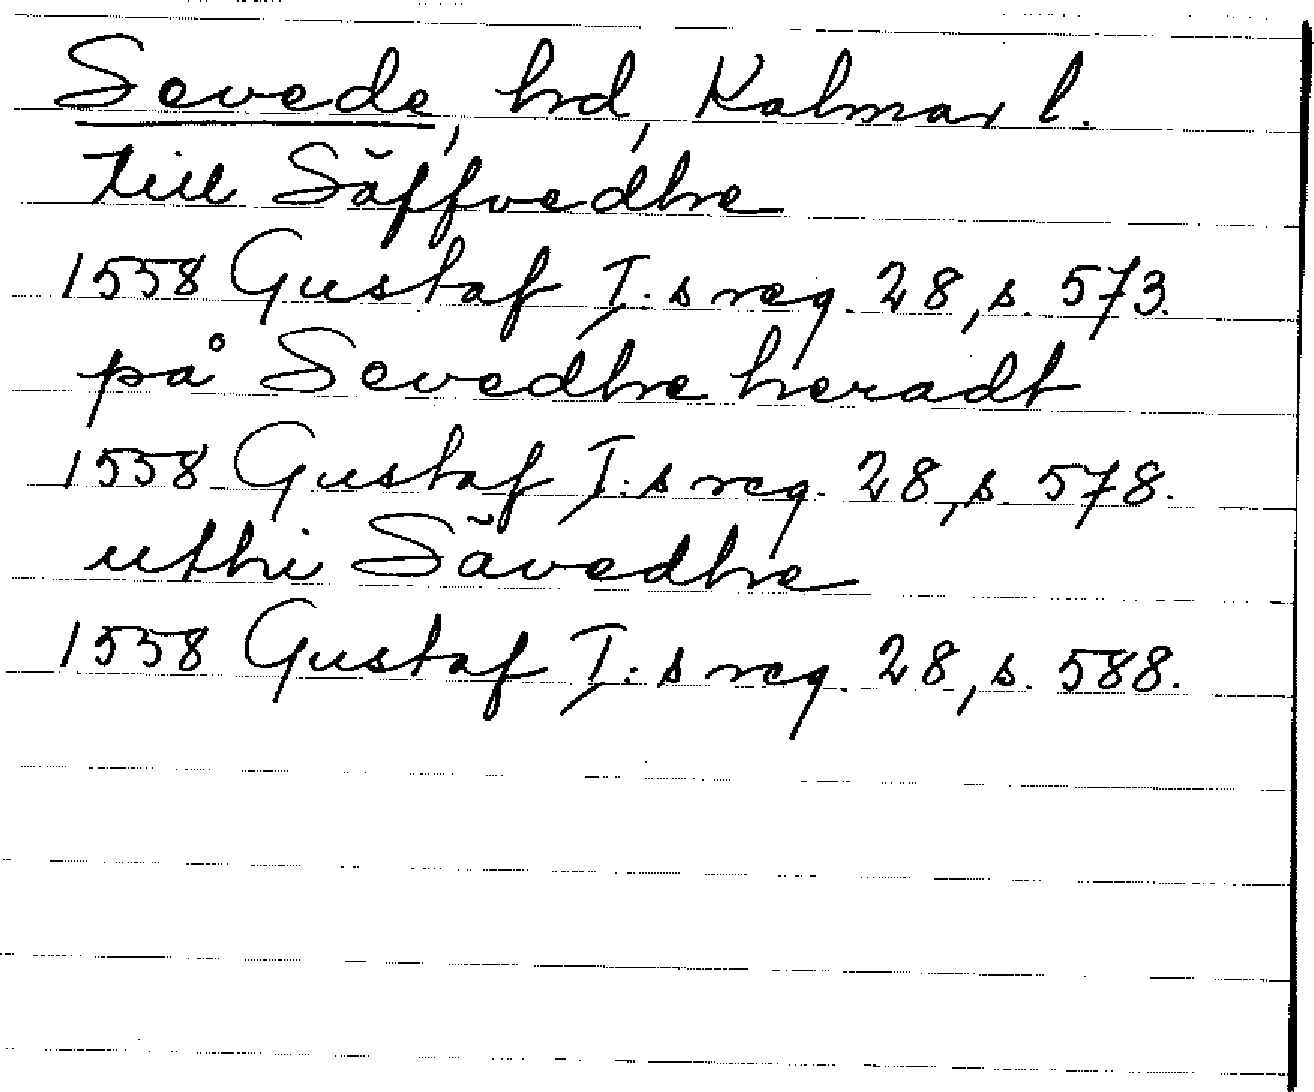 Sevede, hd, Kalmar l.
till Säffvedhe
1558 Gustaf I:s reg. 28, s. 573.
på Sevedhe heradt
1558 Gustaf I:s reg. 28, s. 578.
uthi Sävedhe
1558 Gustaf I:s reg. 28, s. 588.